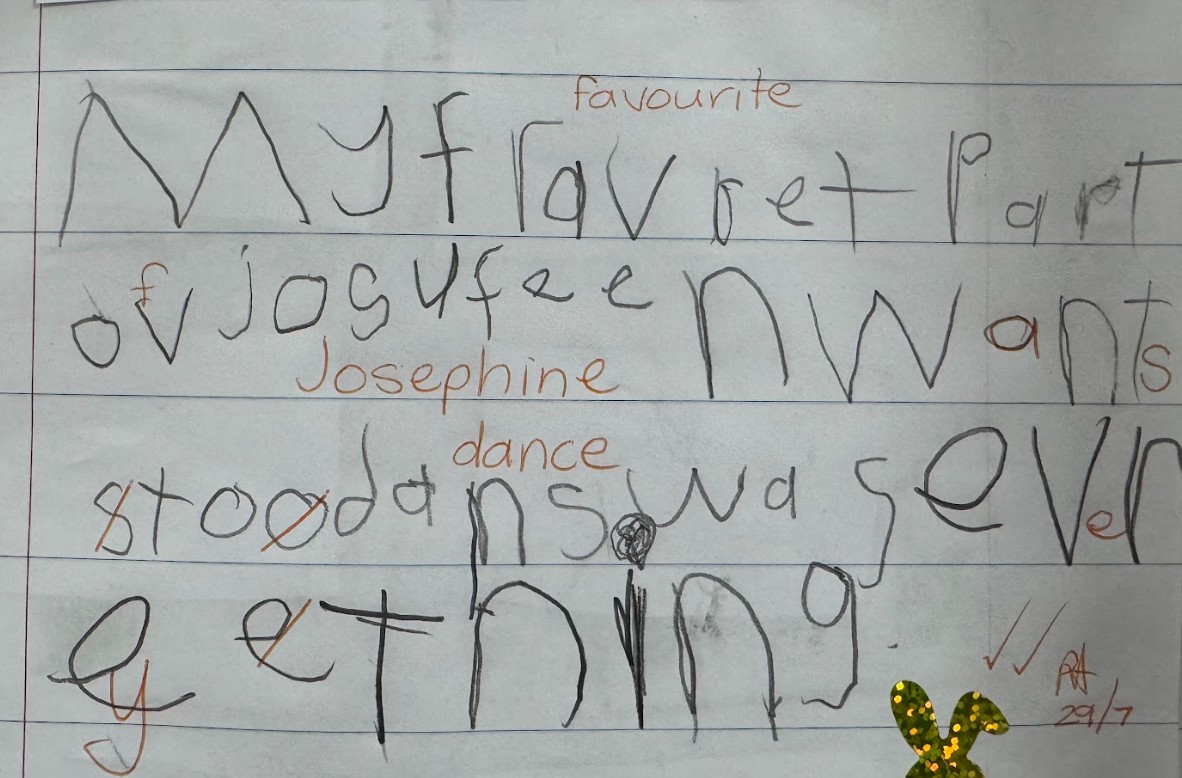 favourite
My fravret Part
f
ov josyfeen wants
Josephine
dance
stoodans. was everr
e
e etning.
y
RA
29/7